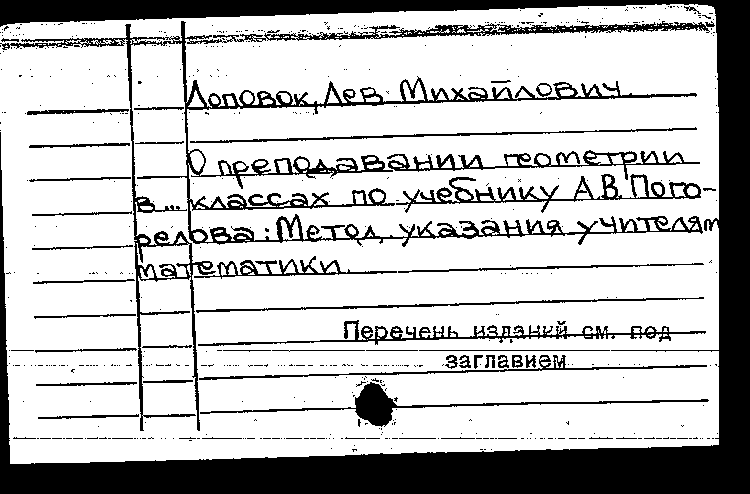 Лоповок, Лев Михайлович.
О преподавании геометрии
в ... классах по учебнику А.В. Пого-
релова: Метод. указания учителям
математики.
Перечень изданий см. под
заглавием